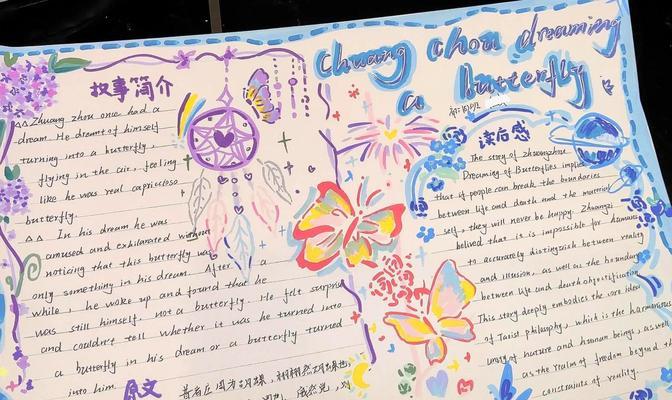 Chuang chou dreaming
a butterfly
故事简介
Zhuang zhou once had a
dream. He dreamt of himself
turning into a butterfly
flying in the air, feeling
like he was real capricioso
butterfly.
In his dream he was
amused and exhilarated without
noticing that this butterfly was
only something in his dream. After a
while, he woke up and found that he
was still himself, not a butterfly. He felt surpris
and couldn't tell whether it was he turned into
a butterfly in his dream or a butterfly turned
into him.
原文
昔者庄周为胡蝶，栩栩然胡蝶也，
读后感
The story of Zhuangzhou
Dreaming of Butterflies implies
that if people can break the boundaries
between life and death and the material
self, they will never be happy. Zhuangzi
belived that is is impossible for humans
to accurately distinguish between reality
and illusion, as well as the boundary
between life and death objectification
This story deeply embodies the core idea
of Taoist philosophy, which is the harmonious
unity of nature and human beings, as we
as the realm of freedom beyond th
constraints of reality.